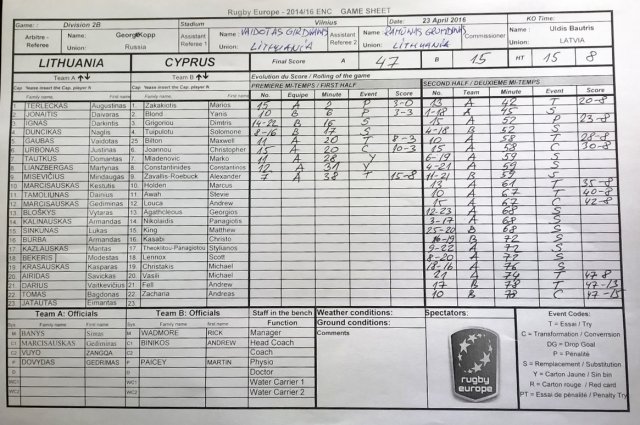 Rugby Europe - 2014/16 ENC GAME SHEET
Game: Division 2B Stadium Vilnius Date: 23 April 2016 KO Time:
Arbitre - Referee Name: George Kopp Union: Russia
Assistant Referee 1 Name: VAIDOTAS Union: LITHUANIA
Assistant Referee 2 Name: RAMŪNAS Union: LITHUANIA
Commissioner Uldis Bautris LATVIA
LITHUANIA CYPRUS Final Score A 47 B 15 HT 15 8
Team A Team B Evolution du Score / Rolling of the game
PREMIERE MI-TEMPS / FIRST HALF SECOND HALF / DEUXIEME MI-TEMPS
Cap Family name First name Cap Family name First name N° Equipe Minute Event Score N° Equipe Minute Event Score
1 TERLECKAS Augustinas 1 Zakakiotis Marios 15 A 2 P 3-0 13 A 42 T 20-8
2 JONAITIS Daivaras 2 Blond Yanis 10 B 6 P 3-3 1-18 A 45 S
3 IGNAS Darkintis 3 Grigoriou Dimitris 14-22 B 16 S 15 A 52 P 23-8
4 DUNCIKAS Naglis 4 Tuipulotu Solomone 8-16 B 17 S 4-18 B 52 S
5 GAUBAS Vaidotas 25 Bilton Maxwell 11 A 20 T 8-3 10 A 58 T 28-8
6 URBONAS Justinas 6 Joannou Christopher 15 A 20 C 10-3 15 A 58 C 30-8
7 TAUTKUS Domantas 7 Mladenovic Marko 11 A 28 Y 6-19 A 59 S
8 LIANZBERGAS Martynas 8 Constantinides Constantinos 12 A 31 Y 4-21 A 59 S
9 MISEVIČIUS Mindaugas 9 Zavallis-Roebuck Alexander 7 A 38 T 15-8 11-21 B 59 S
10 MARCISAUSKAS Kestutis 10 Holden Marcus 13 A 61 T 35-8
11 TAMOLIUNAS Dainius 11 Awah Stevie 10 A 67 T 40-8
12 MARCISAUSKAS Gediminas 12 Louca Andrew 15 A 67 C 42-8
13 BLOŠKYS Vytaras 13 Agatholceous Georgios 12-23 A 68 S
14 KALINAUSKAS Armandas 14 Nikolaidis Panagiotis 3-17 A 68 S
15 SINKUNAS Lukas 15 King Matthew 25-20 B 68 S
16 BURBA Armandas 16 Kasabi Christo 16-19 B 72 S
17 KAZLAUSKAS Mantas 17 Theoklitou-Panagiotou Stylianos 9-22 A 72 S
18 BEKERIS Modestas 18 Lennox Scott 8-20 A 72 S
19 KRASAUSKAS Kasparas 19 Christakis Michael 18-16 A 76 S
20 AIRIDAS Savickas 20 Vasili Michael 21 A 74 T 47-8
21 DARIUS Vaitkevičius 21 Fell Andrew 17 B 78 T 47-13
22 TOMAS Bagdonas 22 Zacharia Andreas 10 B 78 C 47-15
23 JATAUTAS Eimantas 23
Team A: Officials Team B: Officials Staff in the bench Weather conditions: Spectators: Event Codes:
Sys. Family name First name Sys. Family name First name Function Ground conditions: T = Essai / Try
M BANYS Simas M WADMORE RICK Manager Comments C = Transformation / Conversion
C1 MARCISAUSKAS Gediminas C1 BINIKOS ANDREW Head Coach DG = Drop Goal
C2 VUYO ZANGQA C2 Coach P = Pénalité
P DOVYDAS GEDRIMAS P PAICEY MARTIN Physio S = Remplacement / Substitution
D D Doctor Y = Carton Jaune / Sin bin
WC1 WC1 Water Carrier 1 R = Carton rouge / Red card
WC2 WC2 Water Carrier 2 PT = Essai de pénalité / Penalty Try
rugby europe